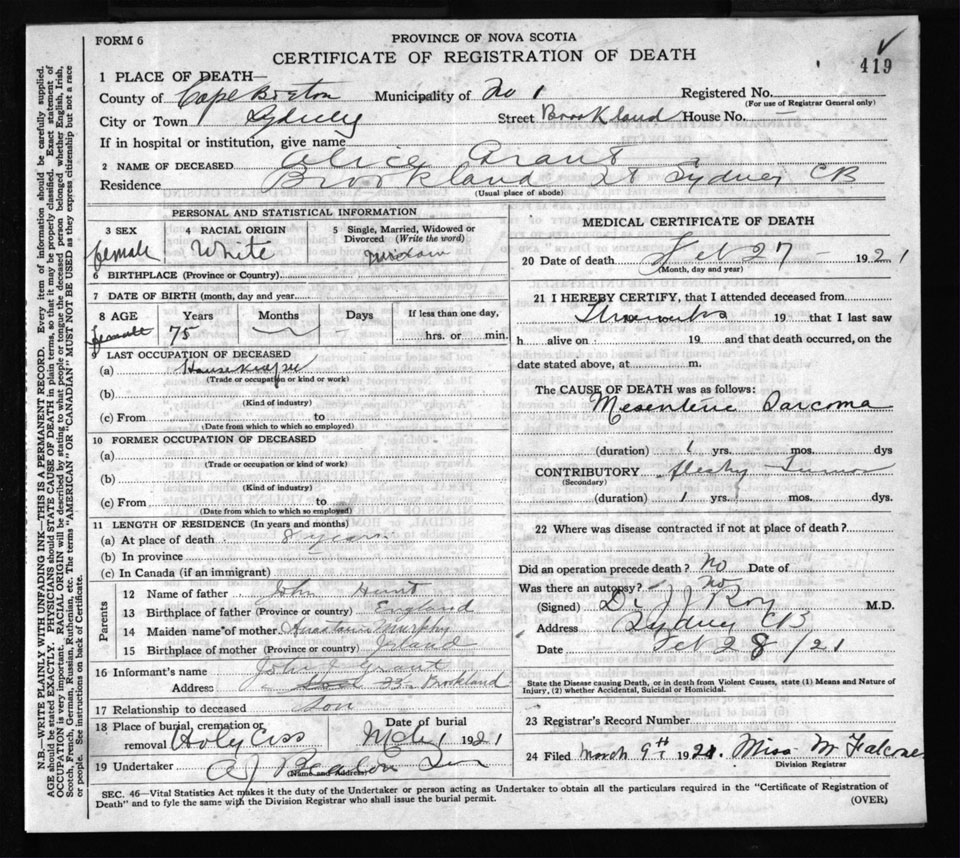 FORM 6
PROVINCE OF NOVA SCOTIA
CERTIFICATE OF REGISTRATION OF DEATH
419
1 PLACE OF DEATH—
County of Cape Breton Municipality of No 1 Registered No.
(For use of Registrar General only)
City or Town Sydney Street Brookland House No. —
If in hospital or institution, give name
2 NAME OF DECEASED Alice Grant
Residence Brookland St Sydney CB
(Usual place of abode)
PERSONAL AND STATISTICAL INFORMATION
3 SEX female
4 RACIAL ORIGIN White
5 Single, Married, Widowed or Divorced (Write the word) widow
6 BIRTHPLACE (Province or Country)
7 DATE OF BIRTH (month, day and year
8 AGE female
Years 75
Months —
Days -
If less than one day,
hrs. or min.
9 LAST OCCUPATION OF DECEASED
(a) Housekeeper
(Trade or occupation or kind or work)
(b)
(Kind of industry)
(c) From to
(Date from which to which so employed)
10 FORMER OCCUPATION OF DECEASED
(a)
(Trade or occupation or kind of work)
(b)
(Kind of industry)
(c) From to
(Date from which to which so employed)
11 LENGTH OF RESIDENCE (In years and months)
(a) At place of death 8 years
(b) In province
(c) In Canada (if an immigrant)
Parents
12 Name of father John Hunt
13 Birthplace of father (Province or country) England
14 Maiden name of mother Anastasia Murphy
15 Birthplace of mother (Province or country) Ireland
16 Informant's name John J Grant
Address 23 Brookland
17 Relationship to deceased Son
18 Place of burial, cremation or removal Holy Cross
Date of burial Mch 1 1921
19 Undertaker AJ Beaton
(Name and Address)
MEDICAL CERTIFICATE OF DEATH
20 Date of death Feb 27 - 1921
(Month, day and year)
21 I HEREBY CERTIFY, that I attended deceased from
19 that I last saw
h alive on 19 and that death occurred, on the
date stated above, at m.
The CAUSE OF DEATH was as follows:
Mesenteric Sarcoma
(duration) 1 yrs. - mos. dys
CONTRIBUTORY fleshy Tumor
(Secondary)
(duration) 1 yrs. mos. dys.
22 Where was disease contracted if not at place of death?
Did an operation precede death? No Date of
Was there an autopsy? No
(Signed) Dr J J Roy M.D.
Address Sydney CB
Date Feb 28/21
State the Disease causing Death, or in death from Violent Causes, state (1) Means and Nature of Injury, (2) whether Accidental, Suicidal or Homicidal.
23 Registrar's Record Number
24 Filed March 9th 1921. Miss M Falconer
Division Registrar
SEC. 46—Vital Statistics Act makes it the duty of the Undertaker or person acting as Undertaker to obtain all the particulars required in the "Certificate of Registration of
Death" and to fyle the same with the Division Registrar who shall issue the burial permit.
(OVER)
N.B.—WRITE PLAINLY WITH UNFADING INK—THIS IS A PERMANENT RECORD. Every item of information should be carefully supplied.
AGE should be stated EXACTLY. PHYSICIANS should STATE CAUSE OF DEATH in plain terms, so that it may be properly classified. Exact statement of
OCCUPATION is very important. RACIAL ORIGIN will be described by stating to what people or tongue the deceased person belonged whether English, Irish,
Scotch, French, German, Russian, Ruthenian, etc. The terms "AMERICAN" OR "CANADIAN" MUST NOT BE USED as they express citizenship but not a race
or people. See instructions on back of Certificate.